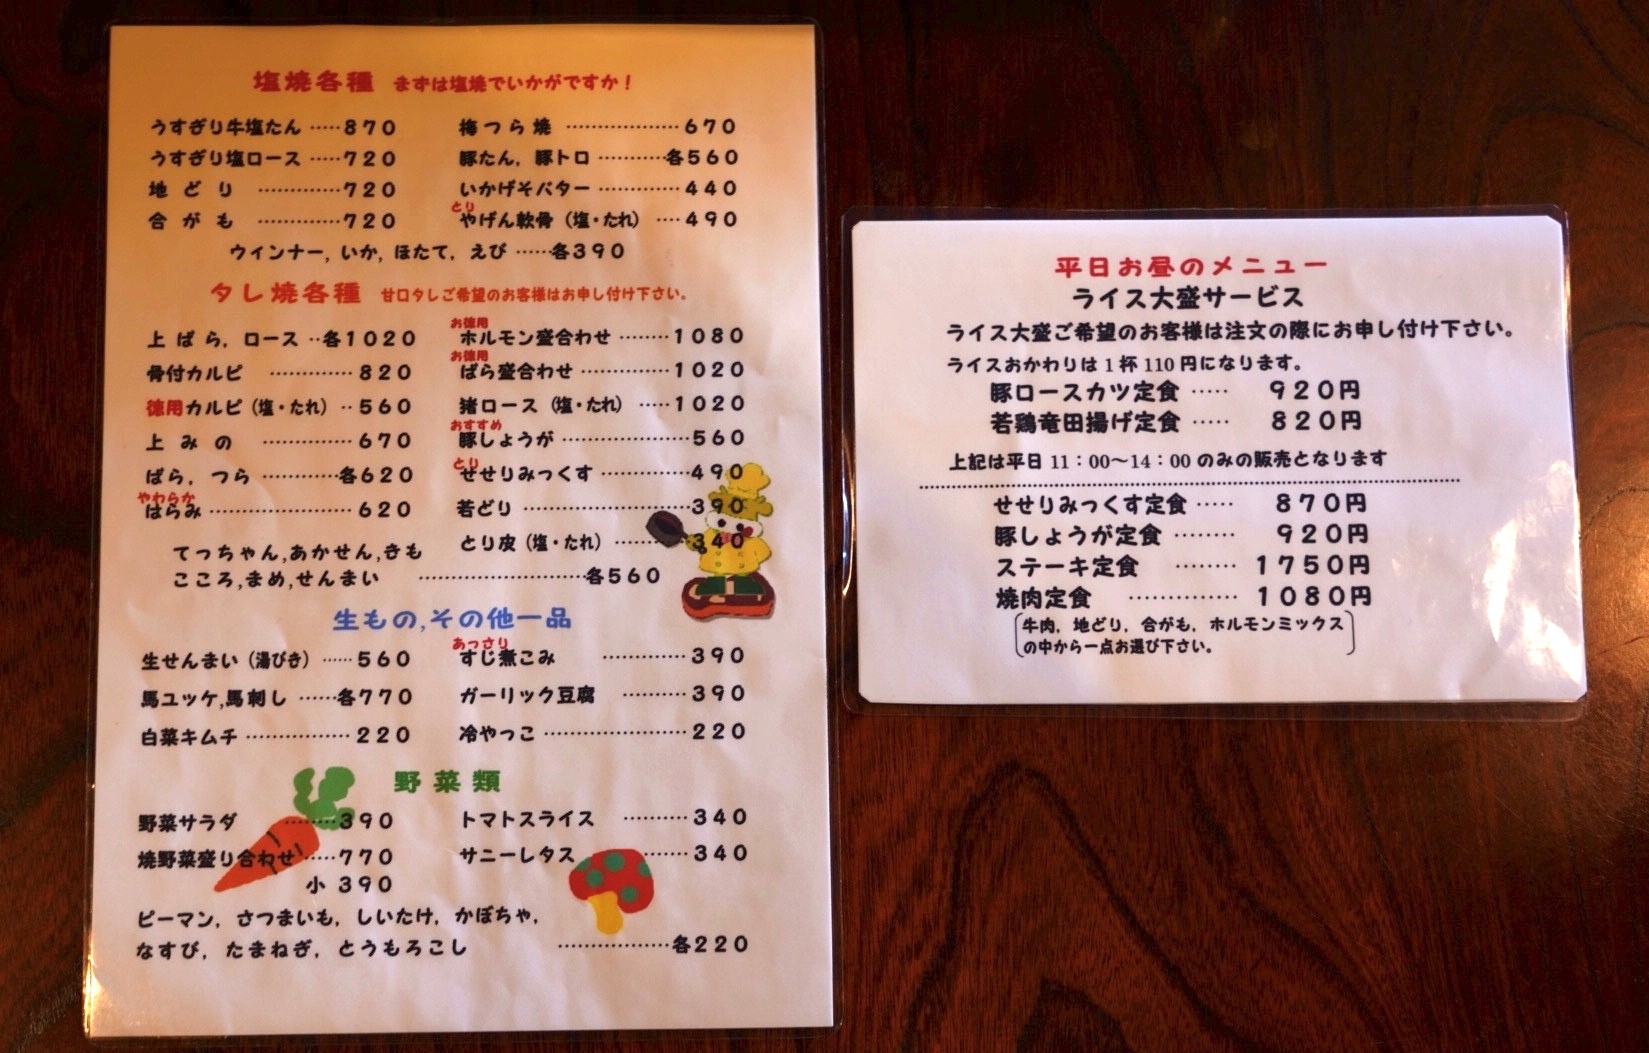 塩焼各種 まずは塩焼でいかがですか!
うすぎり牛塩たん ‥‥‥870
うすぎり塩ロース ‥‥‥720
地どり ‥‥‥‥‥‥720
合がも ‥‥‥‥‥‥720
梅つら焼 ‥‥‥‥‥‥670
豚たん, 豚トロ ‥‥‥‥各560
いかげそバター ‥‥‥‥‥440
とり
やげん軟骨(塩・たれ) ‥‥490
ウインナー, いか, ほたて, えび ‥‥‥各390
タレ焼各種 甘口タレご希望のお客様はお申し付け下さい。
上ばら, ロース ‥各1020
骨付カルビ ‥‥‥‥‥820
徳用カルビ(塩・たれ) ‥560
上みの ‥‥‥‥‥670
ばら, つら ‥‥‥‥‥各620
やわらか
はらみ ‥‥‥‥‥‥620
お徳用
ホルモン盛合わせ ‥‥‥1080
お徳用
ばら盛合わせ ‥‥‥‥1020
猪ロース(塩・たれ) ‥‥1020
おすすめ
豚しょうが ‥‥‥‥‥‥560
とり
せせりみっくす ‥‥‥‥490
若どり ‥‥‥‥‥‥‥390
とり皮(塩・たれ) ‥‥‥340
てっちゃん,あかせん,きも
こころ,まめ,せんまい ‥‥‥‥‥‥‥‥各560
生もの,その他一品
生せんまい(湯びき) ‥‥‥560
馬ユッケ,馬刺し ‥‥‥各770
白菜キムチ ‥‥‥‥‥220
あっさり
すじ煮こみ ‥‥‥‥390
ガーリック豆腐 ‥‥‥‥390
冷やっこ ‥‥‥‥‥‥‥220
野菜類
野菜サラダ ‥‥‥390
焼野菜盛り合わせ ‥‥‥770
小 390
トマトスライス ‥‥‥‥340
サニーレタス ‥‥‥340
ピーマン, さつまいも, しいたけ, かぼちゃ,
なすび, たまねぎ, とうもろこし ‥‥‥‥‥‥各220
平日お昼のメニュー
ライス大盛サービス
ライス大盛ご希望のお客様は注文の際にお申し付け下さい。
ライスおかわりは1杯110円になります。
豚ロースカツ定食 ‥‥‥ 920円
若鶏竜田揚げ定食 ‥‥‥ 820円
上記は平日 11:00～14:00 のみの販売となります
せせりみっくす定食 ‥‥‥ 870円
豚しょうが定食 ‥‥‥‥ 920円
ステーキ定食 ‥‥‥‥ 1750円
焼肉定食 ‥‥‥‥‥‥ 1080円
(牛肉, 地どり, 合がも, ホルモンミックス
の中から一点お選び下さい。)